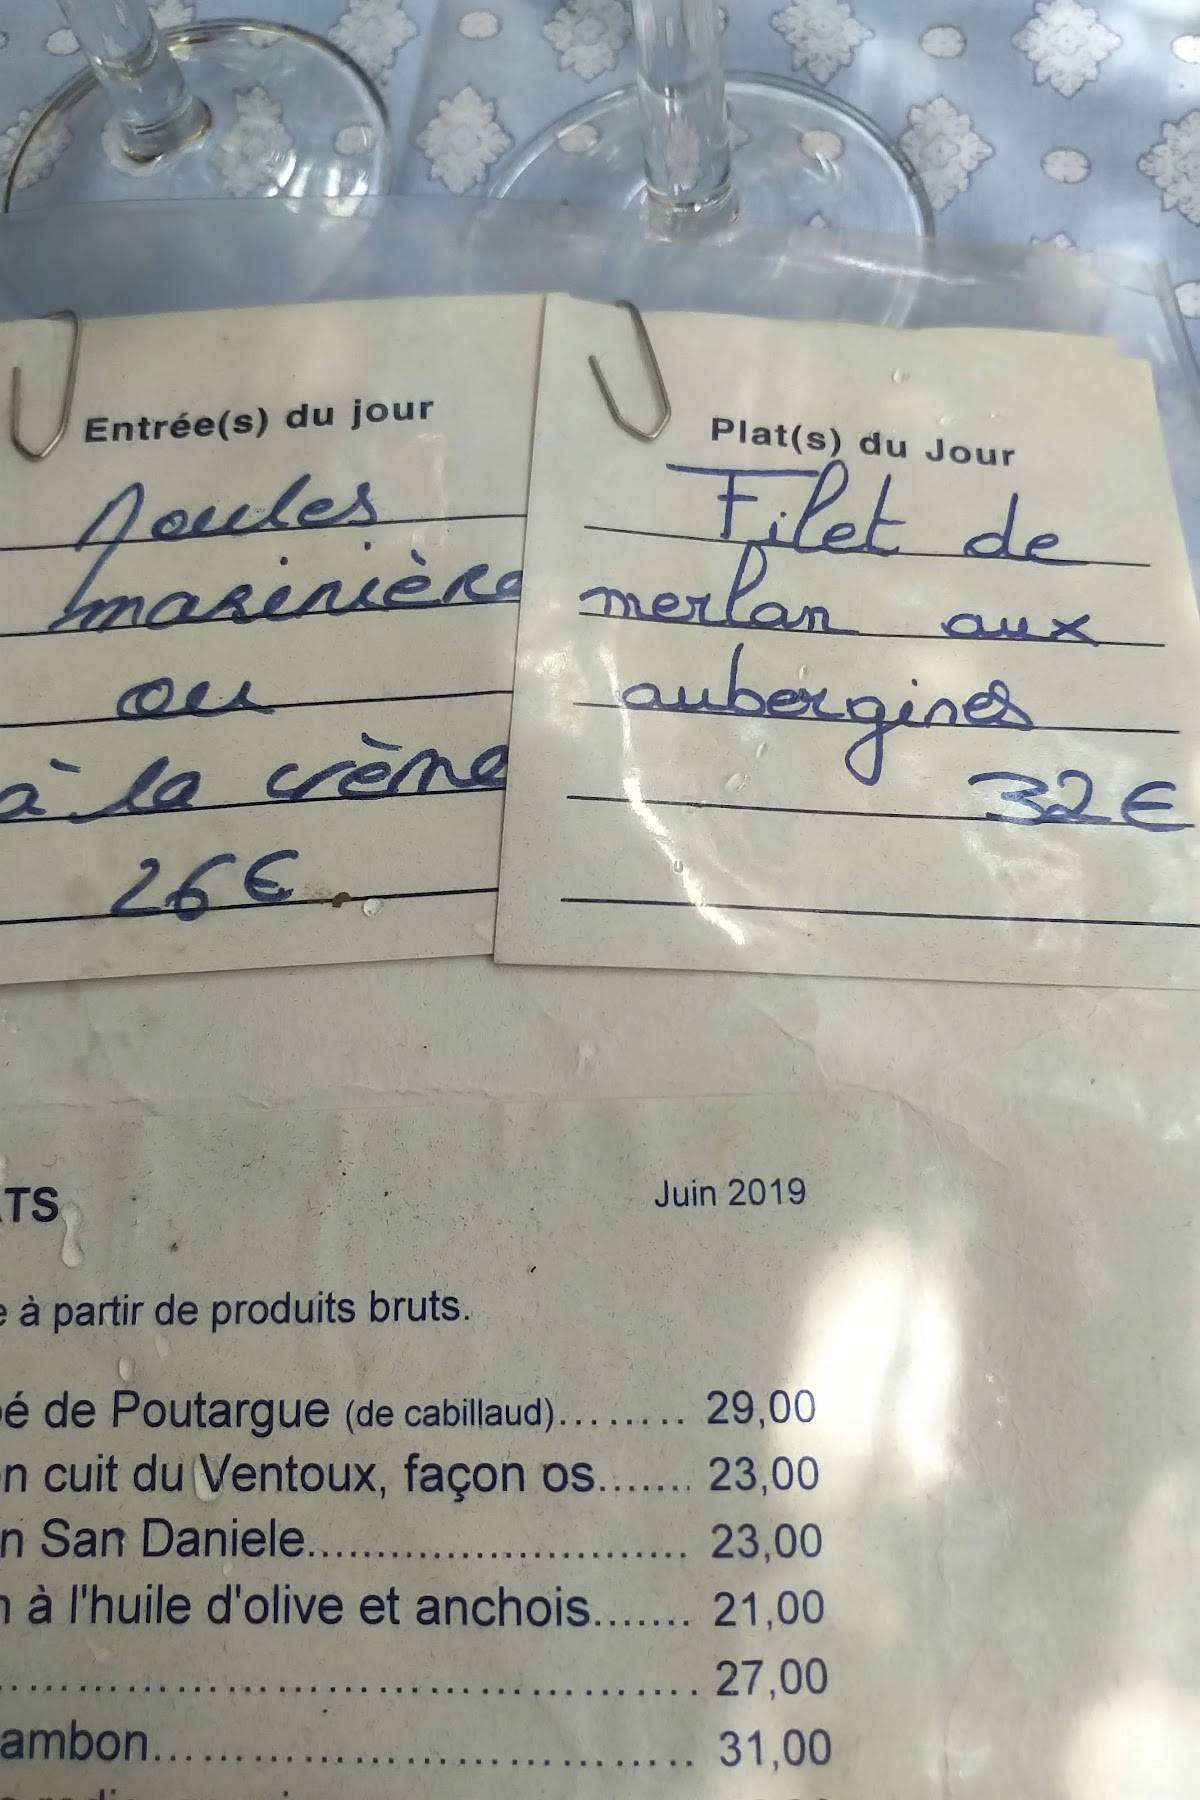 Entrée(s) du jour
Moules
marinière
ou
à la crème
26€
Plat(s) du Jour
Filet de
merlan aux
aubergines
32€
TS
Juin 2019
à partir de produits bruts.
é de Poutargue (de cabillaud)........ 29,00
n cuit du Ventoux, façon os....... 23,00
n San Daniele............................ 23,00
à l'huile d'olive et anchois....... 21,00
........................................ 27,00
ambon................................ 31,00